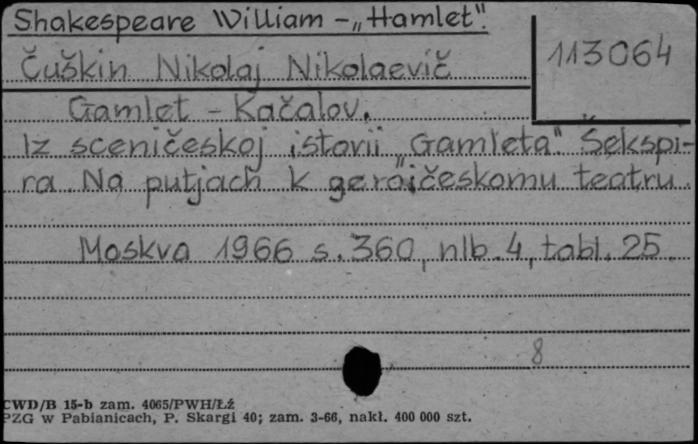 Shakespeare William - „Hamlet".
113064
Čuškin Nikolaj Nikolaevič
Gamlet - Kačalov.
Iz sceničeskoj istorii „Gamleta" Šekspi-
ra. Na putjach k geroičeskomu teatru
Moskva 1966 s. 360, nlb. 4, tabl. 25.
8
CWD/B 15-b zam. 4065/PWH/Łź
PZG w Pabianicach, P. Skargi 40; zam. 3-66, nakł. 400 000 szt.